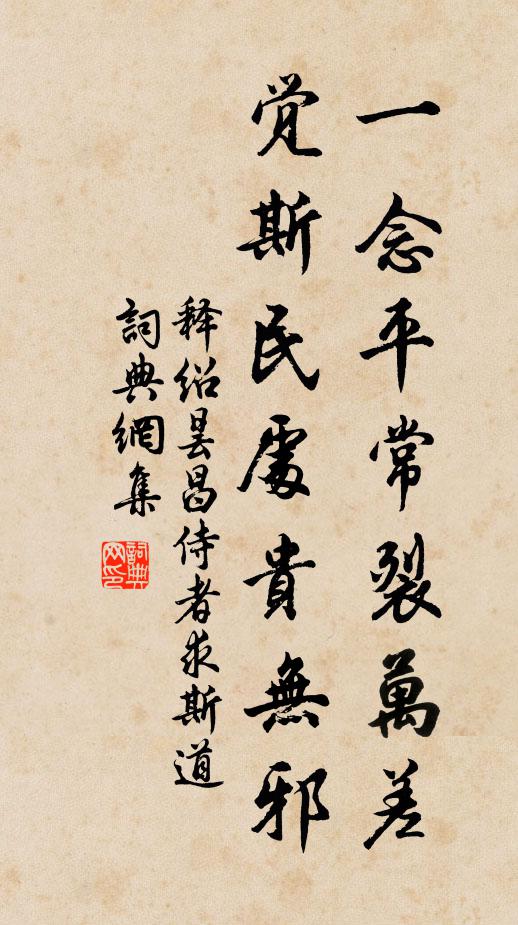 一念平常裂萬差
觉斯民處貴無邪
释绍昙昌侍者求斯道
詞典網集
詞典網印